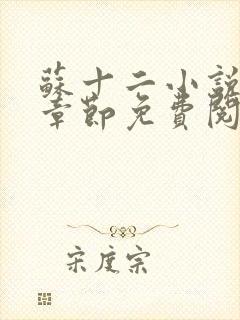 蘇十二小説
章節免費閱
宋度宗